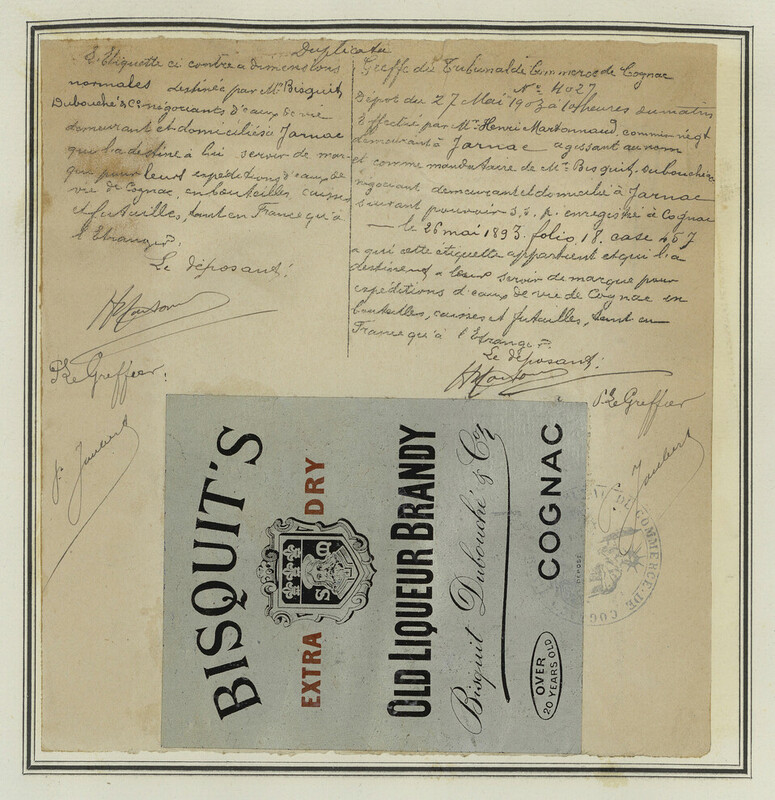 Duplicata
L'Etiquette ci contre a dimensions
normales destinée par Mrs Bisquit,
Dubouché & Co négociants d'eaux de vie
demeurant et domiciliés à Jarnac
qui l'a destiné à lui servir de mar-
que pour leurs expéditions d'eaux de
vie de Cognac, en bouteilles, caisses
et futailles, tant en France qu'à
l'Etranger.
Le déposant:
Pr Le Greffier:
Pr Joubert
Greffe du Tribunal de Commerce de Cognac
No 4027
Dépôt du 27 Mai 1903 à 10 heures du matin
Effectué par Mr Henri Martonnaud, commis négt
demeurant à Jarnac agissant au nom
et comme mandataire de Mrs Bisquit, Dubouché
négociant demeurant et domicilié à Jarnac
suivant pouvoir S.S.P. enregistré à Cognac
le 26 mai 1893. folio 18. case 457
à qui cette étiquette appartient et qui l'a
destinent à leur servir de marque pour
expéditions d'eaux de vie de Cognac en
bouteilles, caisses et futailles, tant en
France qu'à l'Etranger.
Le déposant:
Pr Le Greffier
Joubert
BISQUIT'S
EXTRA DRY
OLD LIQUEUR BRANDY
Bisquit Dubouché & Co
COGNAC
DÉPOSÉ
OVER
20 YEARS OLD
DE COMMERCE DE COGNAC